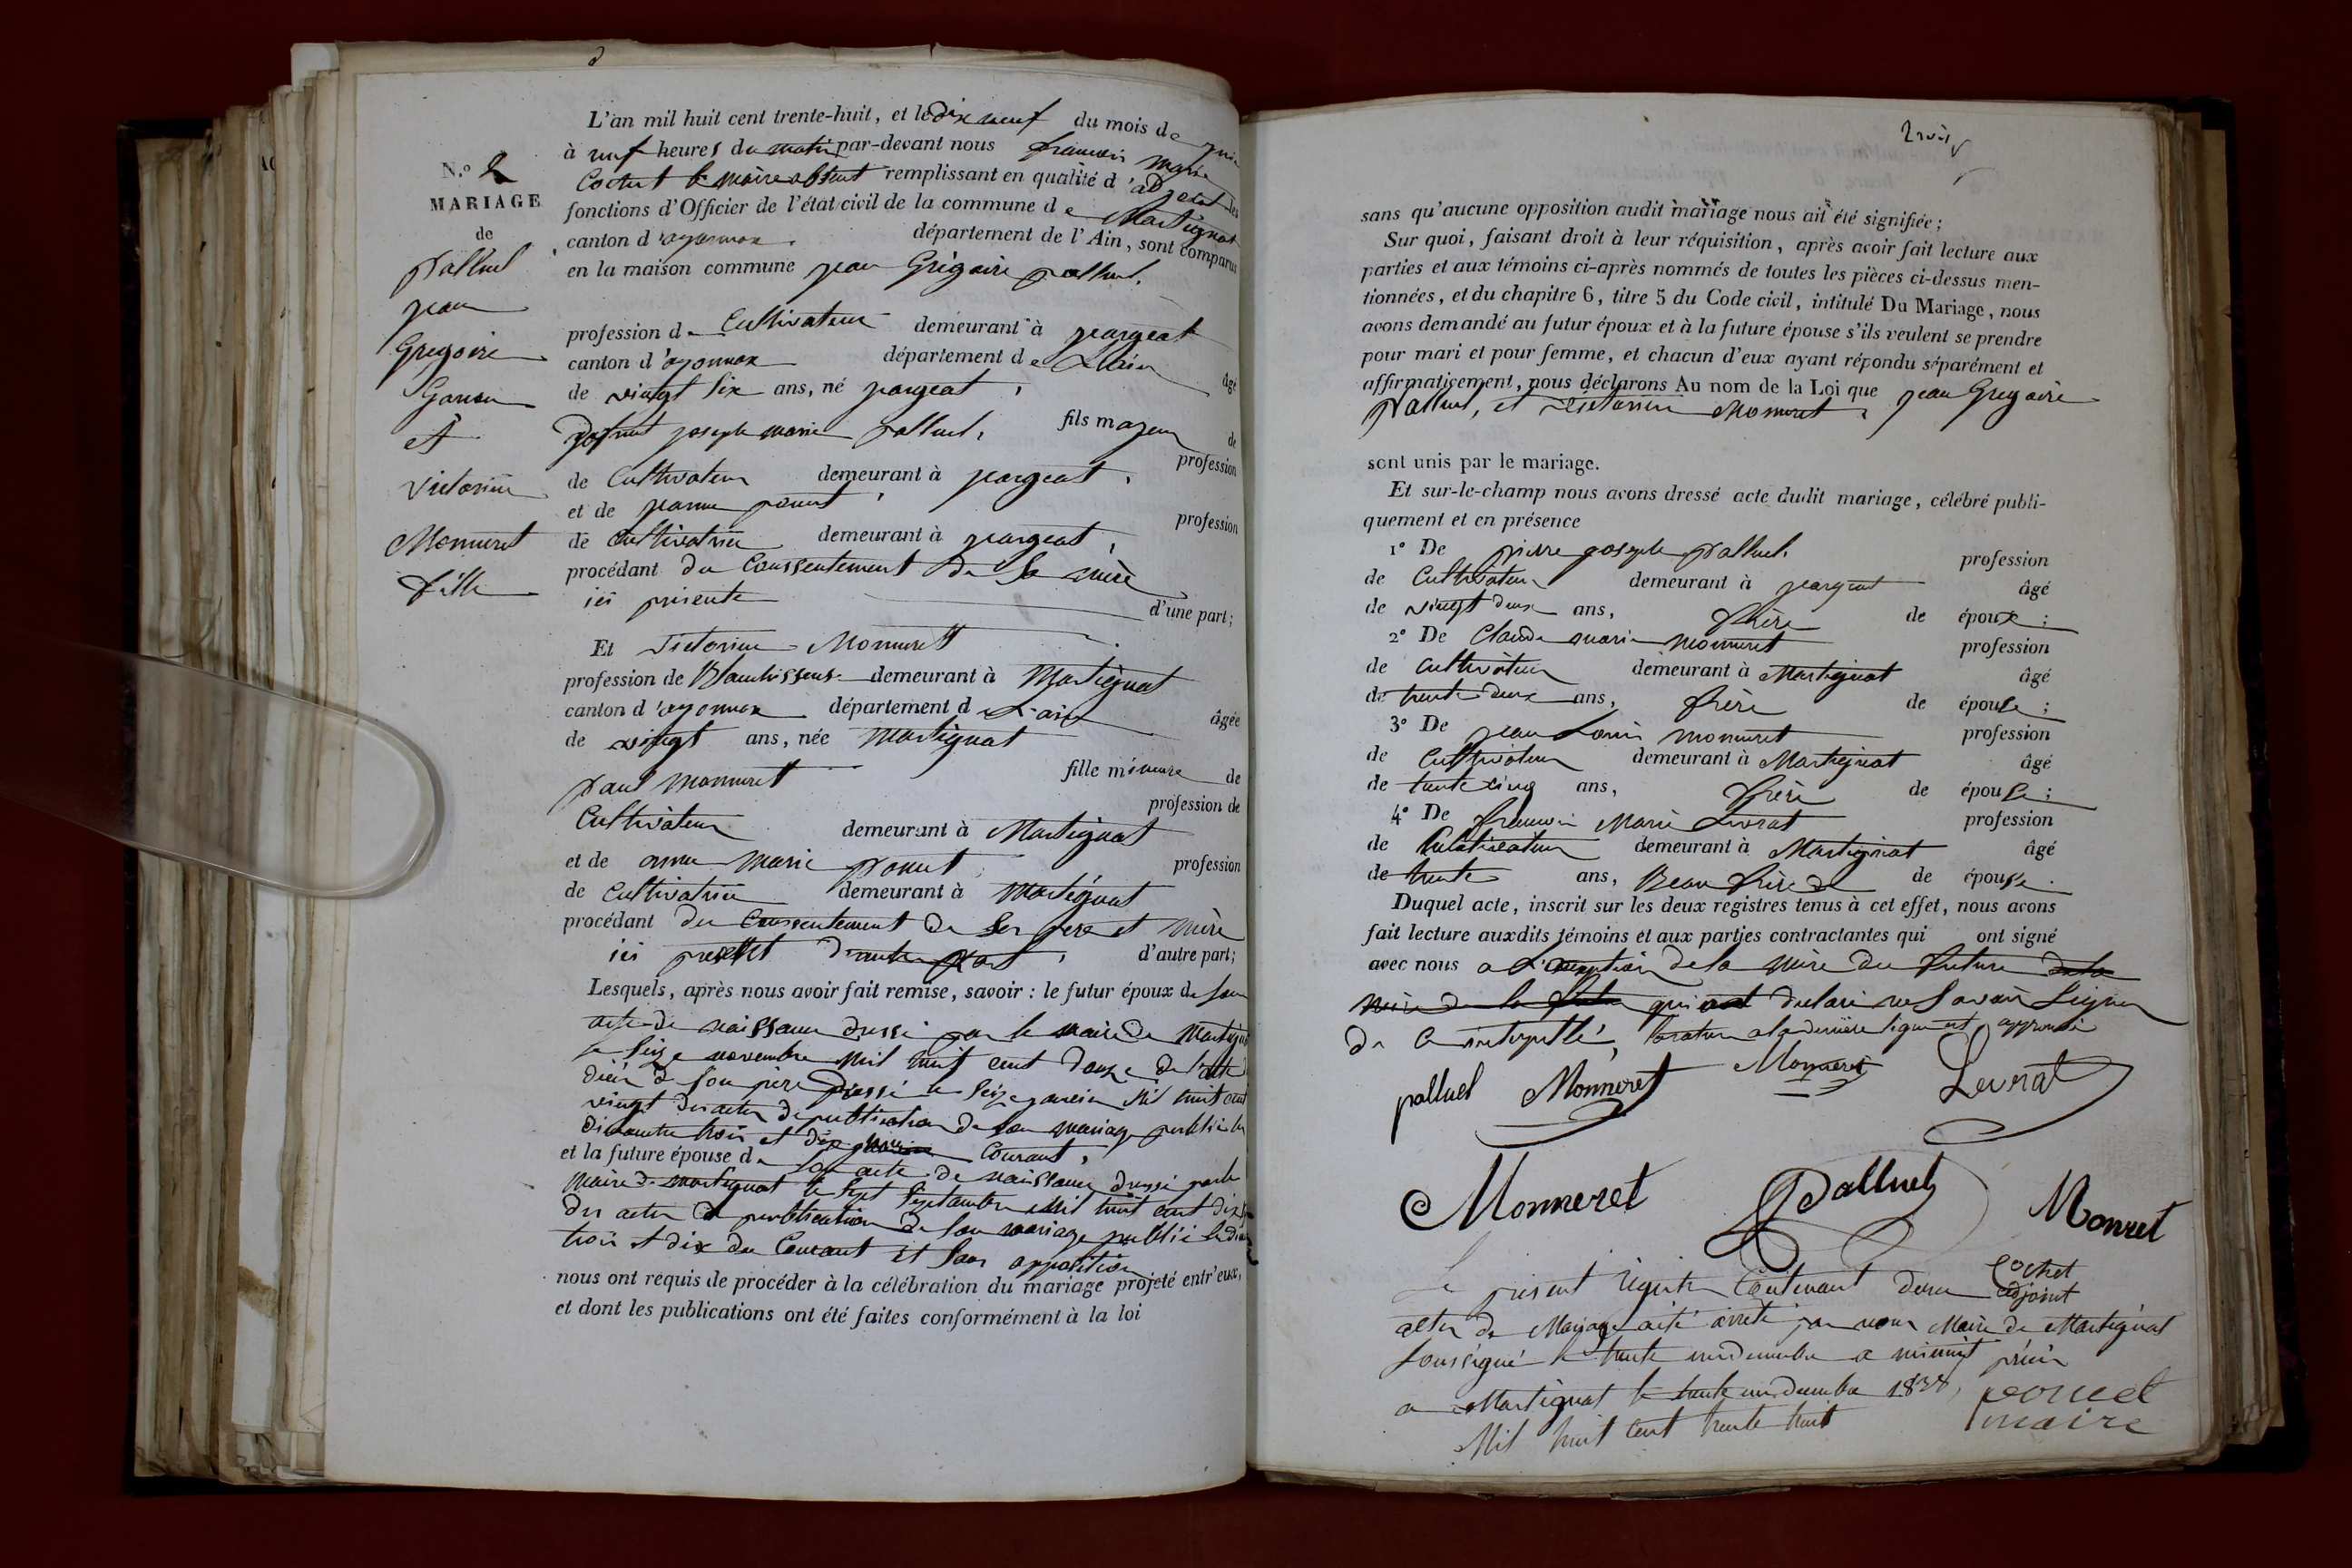 N.o 2
MARIAGE
de
palluel
jean
Gregoire
Garcon
et
victorine
Monneret
fille
L'an mil huit cent trente-huit, et le dix neuf du mois de
à neuf heures du matin par-devant nous francois marie
Cochet le maire absent remplissant en qualité d'adjoint les
fonctions d'Officier de l'état civil de la commune de Martignat
canton d'oyonnax département de l'Ain, sont comparus
en la maison commune jean Grégoire palluel,
profession de Cultivateur demeurant à jeargeat
canton d'oyonnax département de L'ain âgé
de vingt six ans, né jeargeat,
fils majeur de
défunt joseph marie palluel, profession
de Cultivateur demeurant à jeargeat,
et de jeanne ponet, profession
de cultivatrice demeurant à jeargeat,
procédant du Conssentement De Sa mère
ici présente d'une part;
Et victorine Monneret
profession de Blanchisseuse demeurant à Martignat
canton d'oyonnax département de L'ain âgée
de vingt ans, née Martignat
fille mineure de
paul monneret profession de
Cultivateur demeurant à Martignat
et de anne marie ponet, profession
de Cultivatrice demeurant à Martignat
procédant du Conssentement De Ses père et mère
ici present d'autre part, d'autre part;
Lesquels, après nous avoir fait remise, savoir : le futur époux de son
acte de naissance dressé par le maire de Martignat
le Seize novembre mil huit cent douze, de l'acte de
décès de son père Dressé le Seize janvier mil huit cent
vingt des actes de publication de son mariage publié les
dimanche trois et dix juin Courant,
et la future épouse de Son acte de naissance dressé par le
Maire de martignat le Sept Septembre mil huit cent dix
des actes de publication de Son mariage publié
trois et dix du Courant et Sans opposition
nous ont requis de procéder à la célébration du mariage projeté entr'eux,
et dont les publications ont été faites conformément à la loi
sans qu'aucune opposition audit mariage nous ait été signifiée;
Sur quoi, faisant droit à leur réquisition, après avoir fait lecture aux
parties et aux témoins ci-après nommés de toutes les pièces ci-dessus men-
tionnées, et du chapitre 6, titre 5 du Code civil, intitulé Du Mariage, nous
avons demandé au futur époux et à la future épouse s'ils veulent se prendre
pour mari et pour femme, et chacun d'eux ayant répondu séparément et
affirmativement, nous déclarons Au nom de la Loi que jean Gregoire
palluel, et victorine Monneret,
sont unis par le mariage.
Et sur-le-champ nous avons dressé acte dudit mariage, célébré publi-
quement et en présence
1o De pierre joseph palluel, profession
de Cultivateur demeurant à jeargeat âgé
de vingt deux ans, frère de époux;
2o De Claude marie monneret profession
de cultivateur demeurant à Martignat âgé
de trente deux ans, frère de épouse;
3o De jean Louis monneret profession
de Cultivateur demeurant à Martignat âgé
de trente cinq ans, frère de épouse;
4o De francois Marie Levrat profession
de Cultivateur demeurant à Martignat âgé
de trente ans, Beau frère de de épouse.
Duquel acte, inscrit sur les deux registres tenus à cet effet, nous avons
fait lecture auxdits témoins et aux parties contractantes qui ont signé
avec nous a L'exeption de la mère du future de la
mère de la future qui ont declaré ne Savoir Signer
de ce interpellé, la rature a la dernière ligne est approuvé
palluel Monneret Monneret Levrat
Monneret Palluel Monret
Cochet
adjoint
Le present registre Contenant deux
actes de Mariage a été arreté par nous Maire de Martignat
Soussigné le trente un décembre a minuit précis
a Martignat le trente un decembre 1838,
Mil huit cent trente huit
ponet
maire